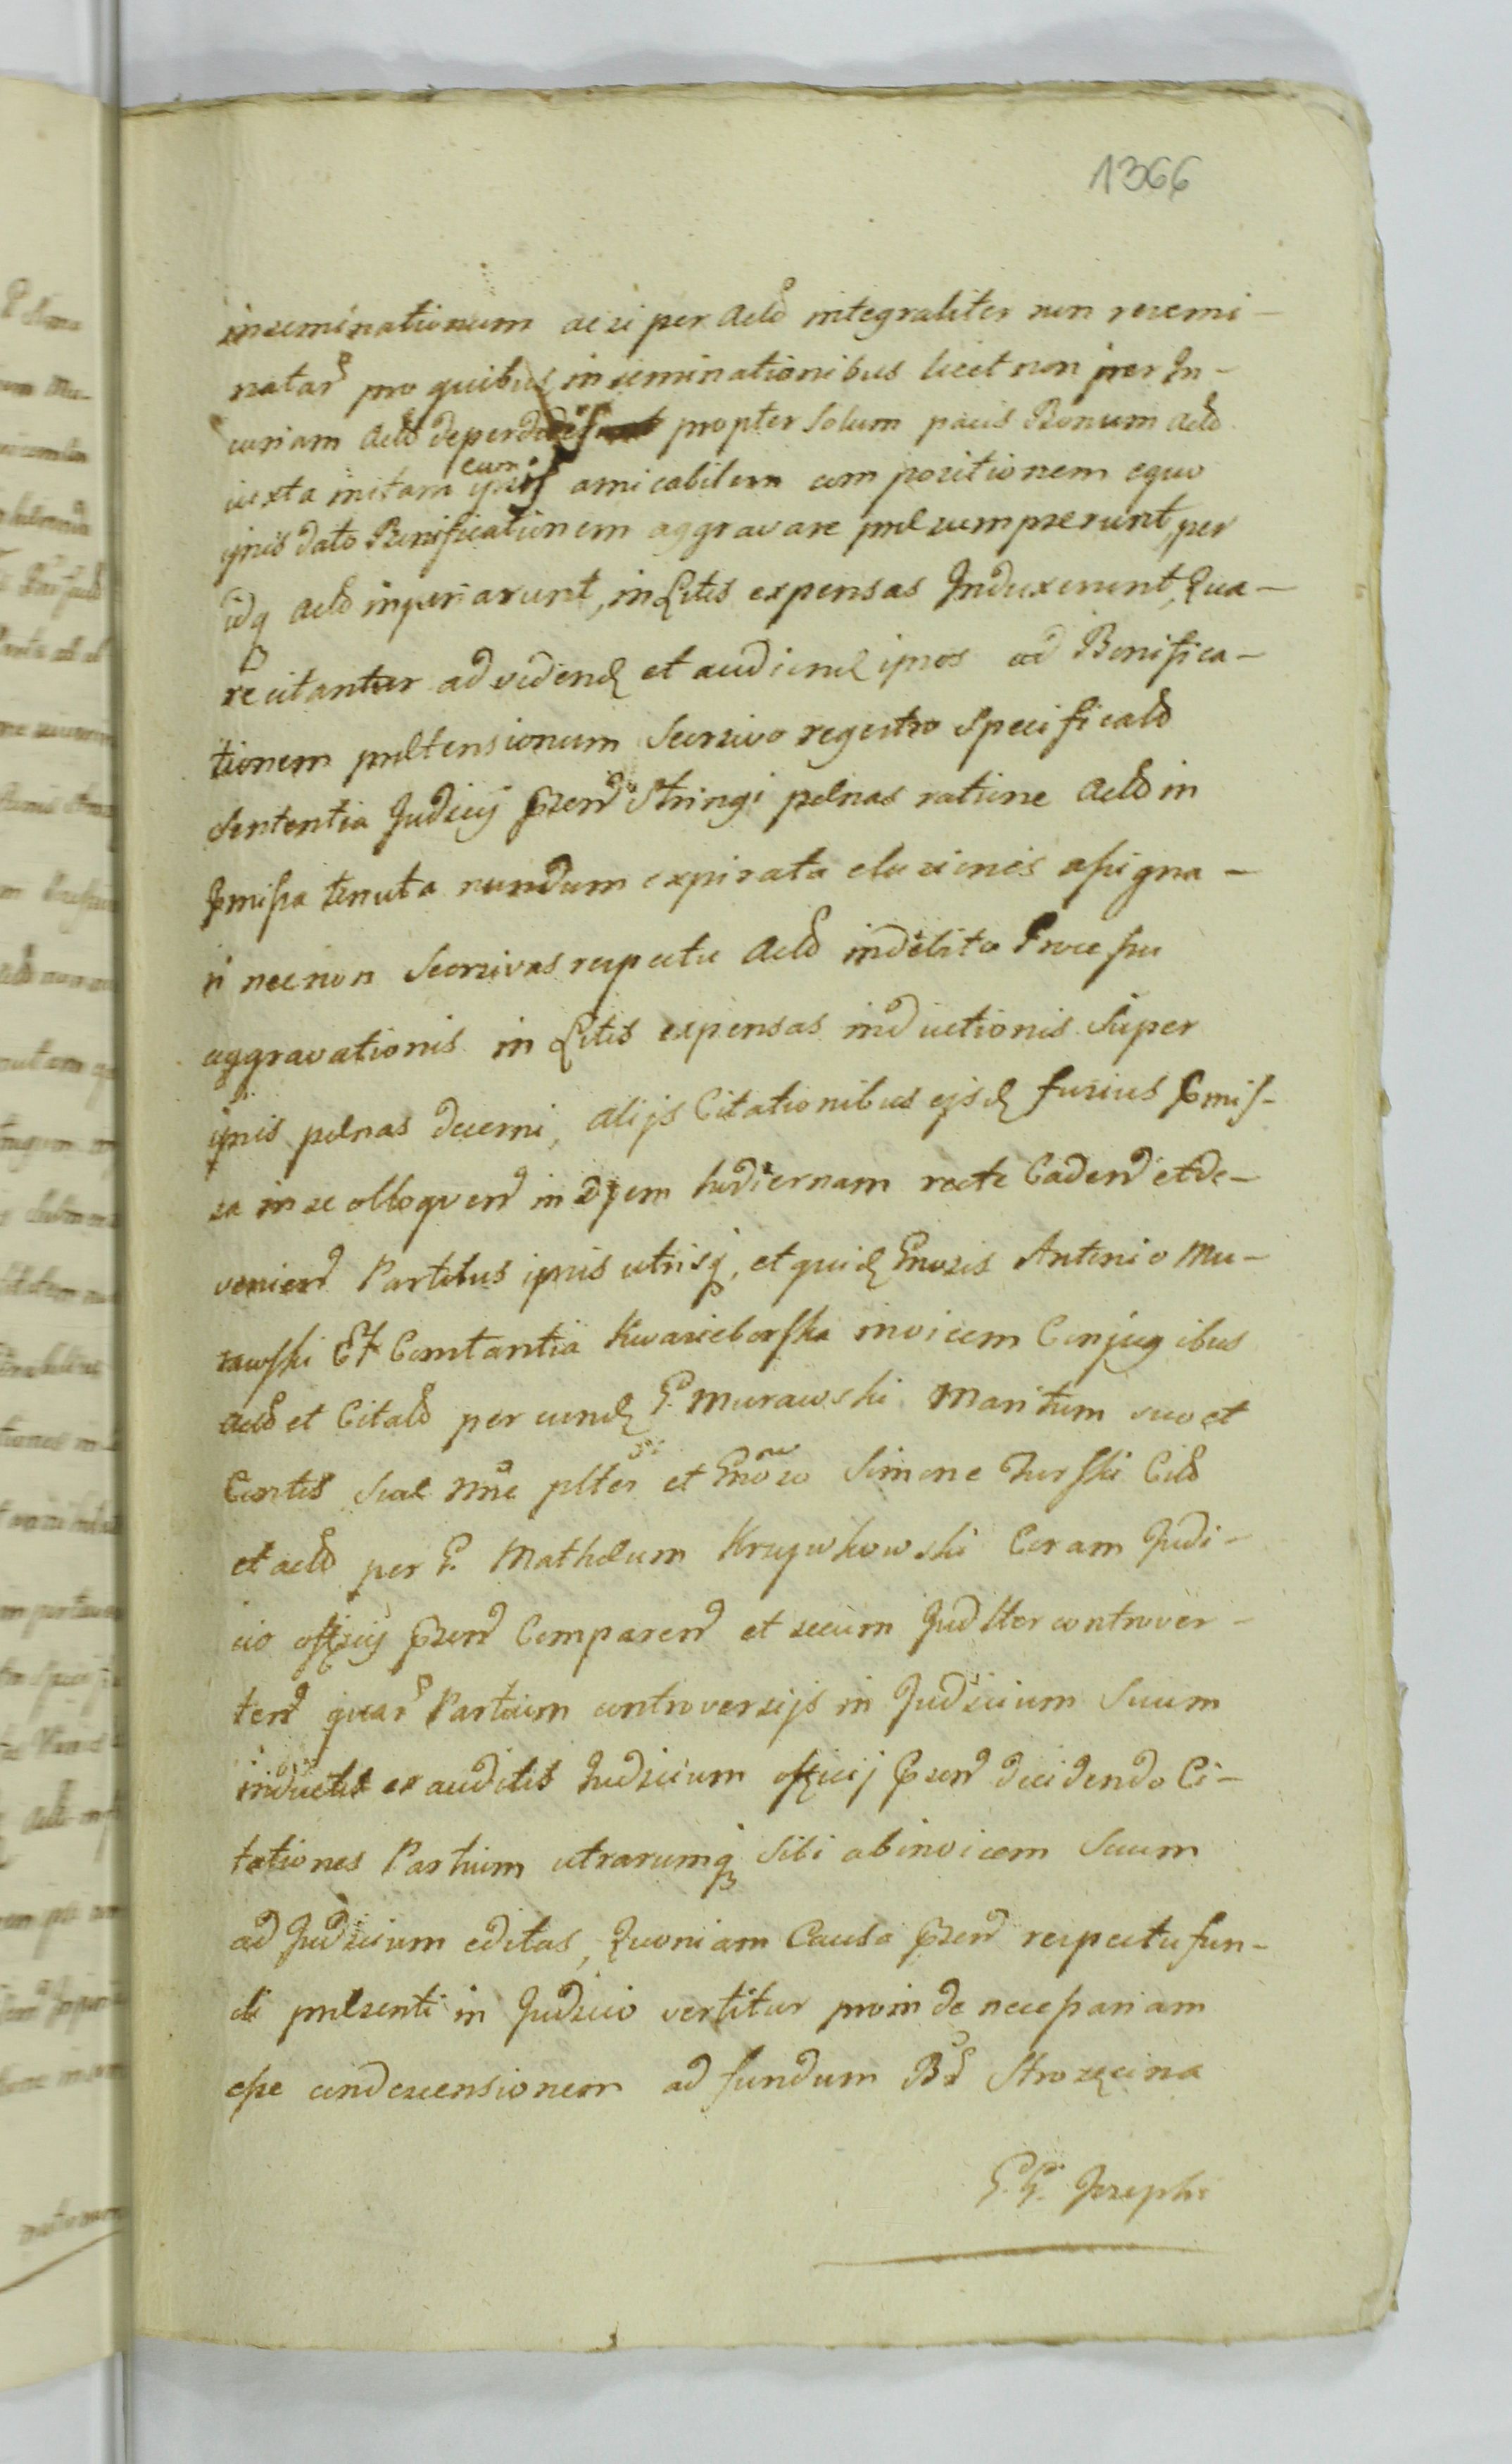 1366
inseminationum ac si per Actd integraliter non resemi-
natar pro quibus inseminationibus licet non per In-
curiam Actd propter solum pacis Bonum Actd
iuxta initam cum ipsis amicabilem compositionem equo
ipsis dato Bonificationem aggravare prdesumpserunt, per
idq Actd injuriarunt, in Litis expensas Induxerunt, Qua-
re citantur ad vidend et audiend ipsos ad Bonifica-
tionem prdetensionum Seorsivo regestro Specificatd
Sententia Judicij Prend Stringi pdenas ratione Actd in
Pmissa tenuta nundum expirata elusionis assigna-
ri necnon Seorsivas respectu Actd indebito Processu
aggravationis in Litis expensas inductionis Super
ipsis pdenas decerni, alijs Citationibus ejsd fusius Pmis-
sa in se olloqvend in diem hodiernam recte Cadend et de-
veniend Partibus ipsis utrisq, et quid Gnosis Antonio Mu-
rawski Et Constantia Kwascieborska invicem Conjugibus
Actd et Citatd per eund G. Murawski Maritum suo et
Consortis Suae nne plter et Gnoso Simone Turski Citd
et actd per G. Mathdeum Krzywkowski Coram Judi-
cio officij Prend Comparend et secum Judlter controver-
tend quar Partium controversijs in Judicium Suum
inductis exauditis Judicium officij Prend decidendo Ci-
tationes Partium utrarumq Sibi abinvicem Suum
ad Judicium editas, Quoniam Causa Prend respectu fun-
di prdesenti in Judicio vertitur proinde necessariam
esse condescensionem ad fundum Bd Strozęcina
G. G. Josephi